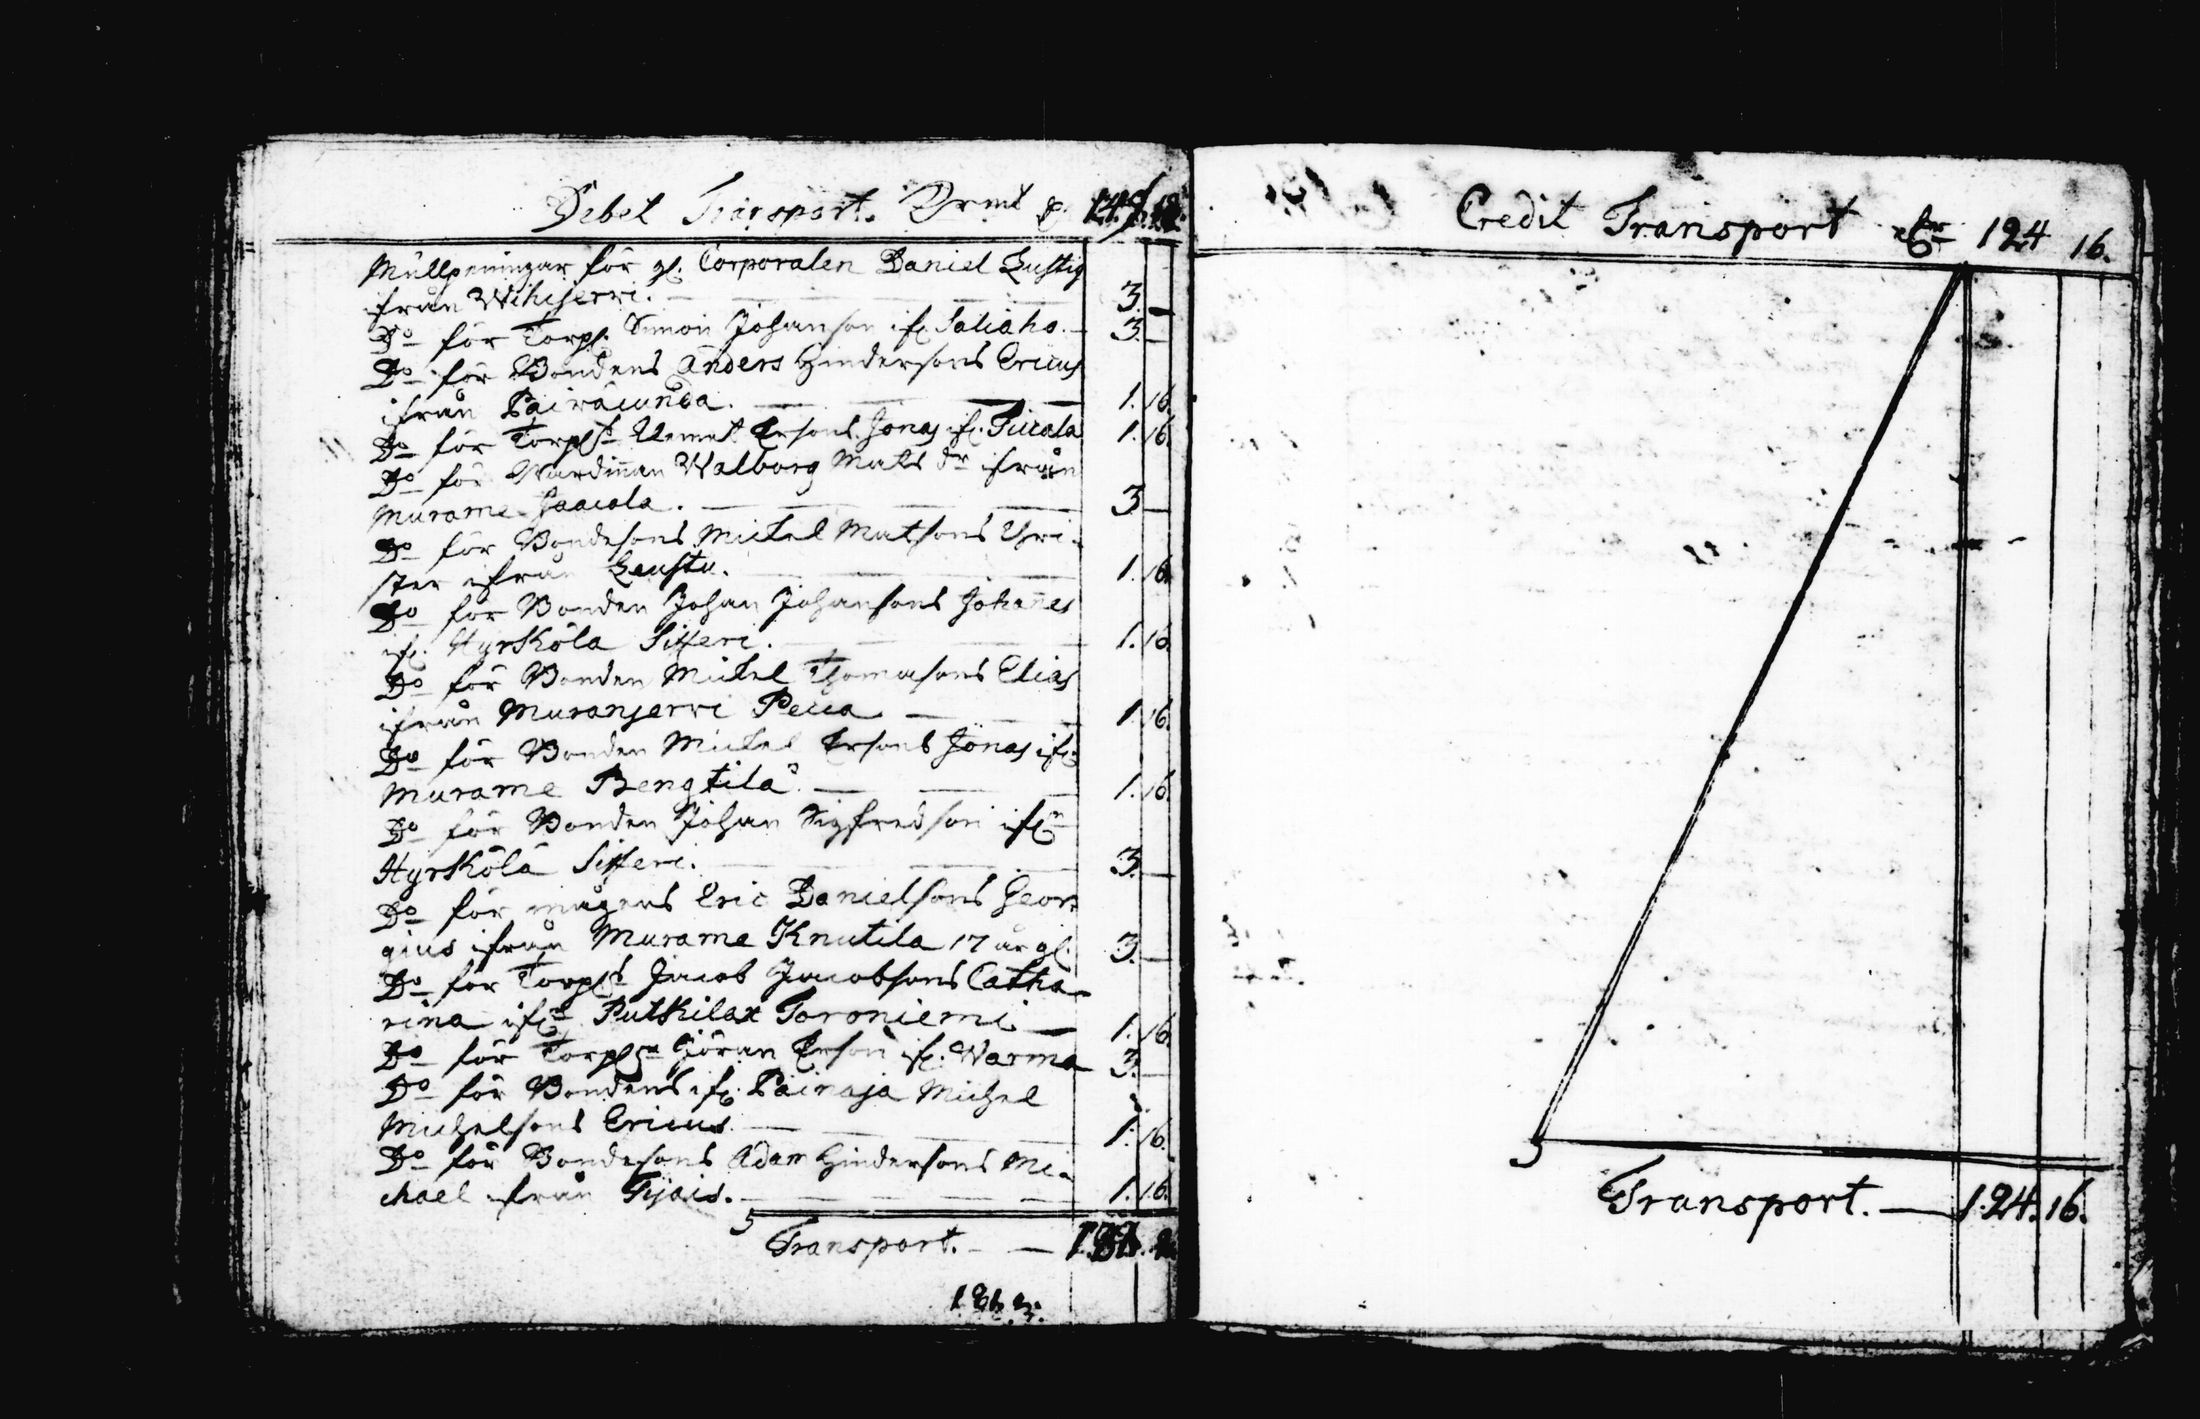 Debet Transport. Drmt p. 149.12.
Mullpeningar för gl. Corporalen Daniel Lustig
från Wihijerwi. 3. —
Do för Torp. Simon Johanson if. Saliaho. 3. —
Do för Bondens Anders Hindersons Ericus
ifrån Pairäcunda. 1. 16.
Do för Torp Clemet Ersons Jonas if. Piccala 1. 16.
Do för Wärdinnan Walborg Mats dr ifrån
Murame Jaacola. 3. —
Do för Bondesons Mickel Matsons Chri-
ster ifrån Leustu. 1. 16.
Do för Bonden Johan Johansons Johannes
if. Hyrskölä Sifferi. 1. 16.
Do för Bonden Mickel Thomasons Elias
ifrån Muranjerwi Pecca 1. 16.
Do för Bonden Mickel Ersons Jonas if.
Murame Bengtilä. 1. 16.
Do för Bonden Johan Sigfredson ifn
Hyrskölä Sifferi. 3. —
Do för mågens Eric Danielsons Geor-
gius ifrån Murame Knutila 17 år gl. 3. —
Do för Torp Jacob Jacobsons Catha-
rina ifn Putkilax Toroniemi 1. 16.
Do för Torp Göran Erson if. Warma 3. —
Do för Bondens if. Päinaja Michel
Michelsons Ericus. 1. 16.
Do för Bondesons Adam Hindersons Mi-
chael ifrån Tijais. 1. 16.
Transport.
Credit Transport 124 16.
Transport. 124. 16.